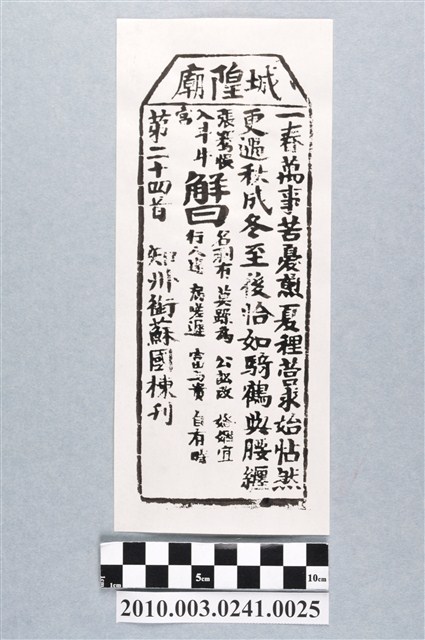 城隍廟
一春萬事苦憂煎夏裡營求始帖然
更遇秋成冬至後恰如騎鶴與腰纏
張騫悞
入斗牛
宮
解曰
名利有 莫踈為 公訟改 婚姻宜
行人 病 遲 富與貴 自有時
第二十四首 州街蘇國棟刊
1cm
5cm
10cm
2010.003.0241.0025